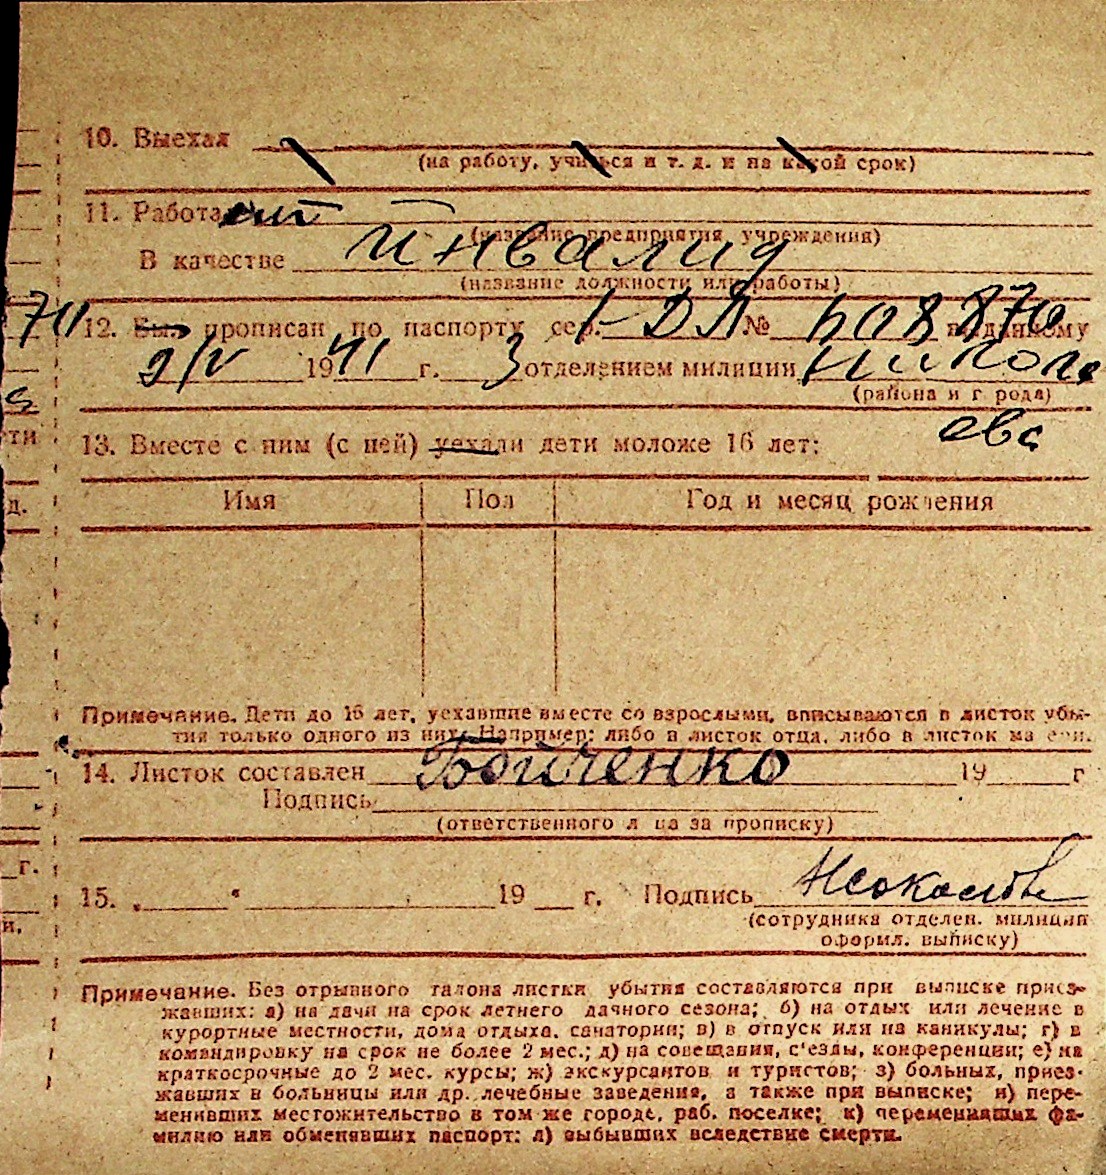 10. Выехал
(на работу, учиться и т. д. и на какой срок)
11. Работает
(название предприятия учреждения)
В качестве Инвалид
(название должности или работы)
12. Был прописан по паспорту сер. I-ДЛ № 608870 выданному
9/V 1941 г. 3 отделением милиции Никола
(района и города)
евс
13. Вместе с ним (с ней) уехали дети моложе 16 лет:
Имя Пол Год и месяц рождения
Примечание. Дети до 16 лет, уехавшие вместе со взрослыми, вписываются в листок убы-
тия только одного из них. Например: либо в листок отца, либо в листок матери.
14. Листок составлен Бойченко 19 г
Подпись
(ответственного лица за прописку)
15. „ “ 19 г. Подпись
(сотрудника отделен. милиции
оформ. выписку)
Примечание. Без отрывного талона листки убытия составляются при выписке приез-
жавших: а) на дачи на срок летнего дачного сезона; б) на отдых или лечение в
курортные местности, дома отдыха, санатории; в) в отпуск или на каникулы; г) в
командировку на срок не более 2 мес.; д) на совещания, с'езды, конференции; е) на
краткосрочные до 2 мес. курсы; ж) экскурсантов и туристов; з) больных, приез-
жавших в больницы или др. лечебные заведения, а также при выписке; и) пере-
менивших местожительство в том же городе, раб. поселке; к) переменивших фа-
милию или обменявших паспорт; л) выбывших вследствие смерти.